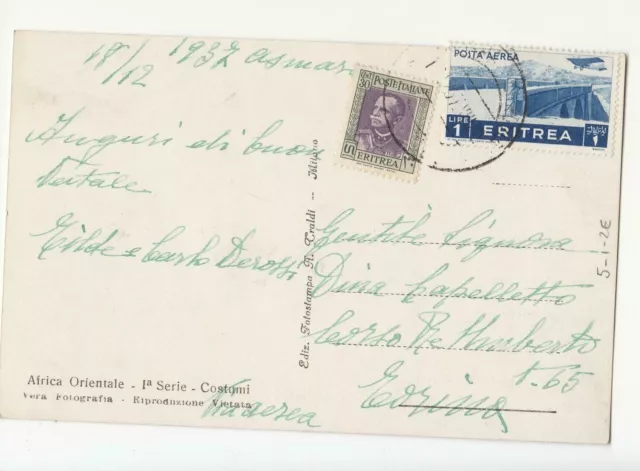 18/12 1937 Asmara
Auguri di buon
Natale
Gilda e Carlo Derossi
Africa Orientale - Iª Serie - Costumi
Vera Fotografia - Riproduzione Vietata
Via aerea
Ediz. Fotostampa A. Traldi - Milano
POSTE ITALIANE
CENT 50
ERITREA
POSTA AEREA
LIRE 1
ERITREA
Gentile Signora
Dina Capelletto
Corso Re Umberto
n. 65
Torino
5-1-2E